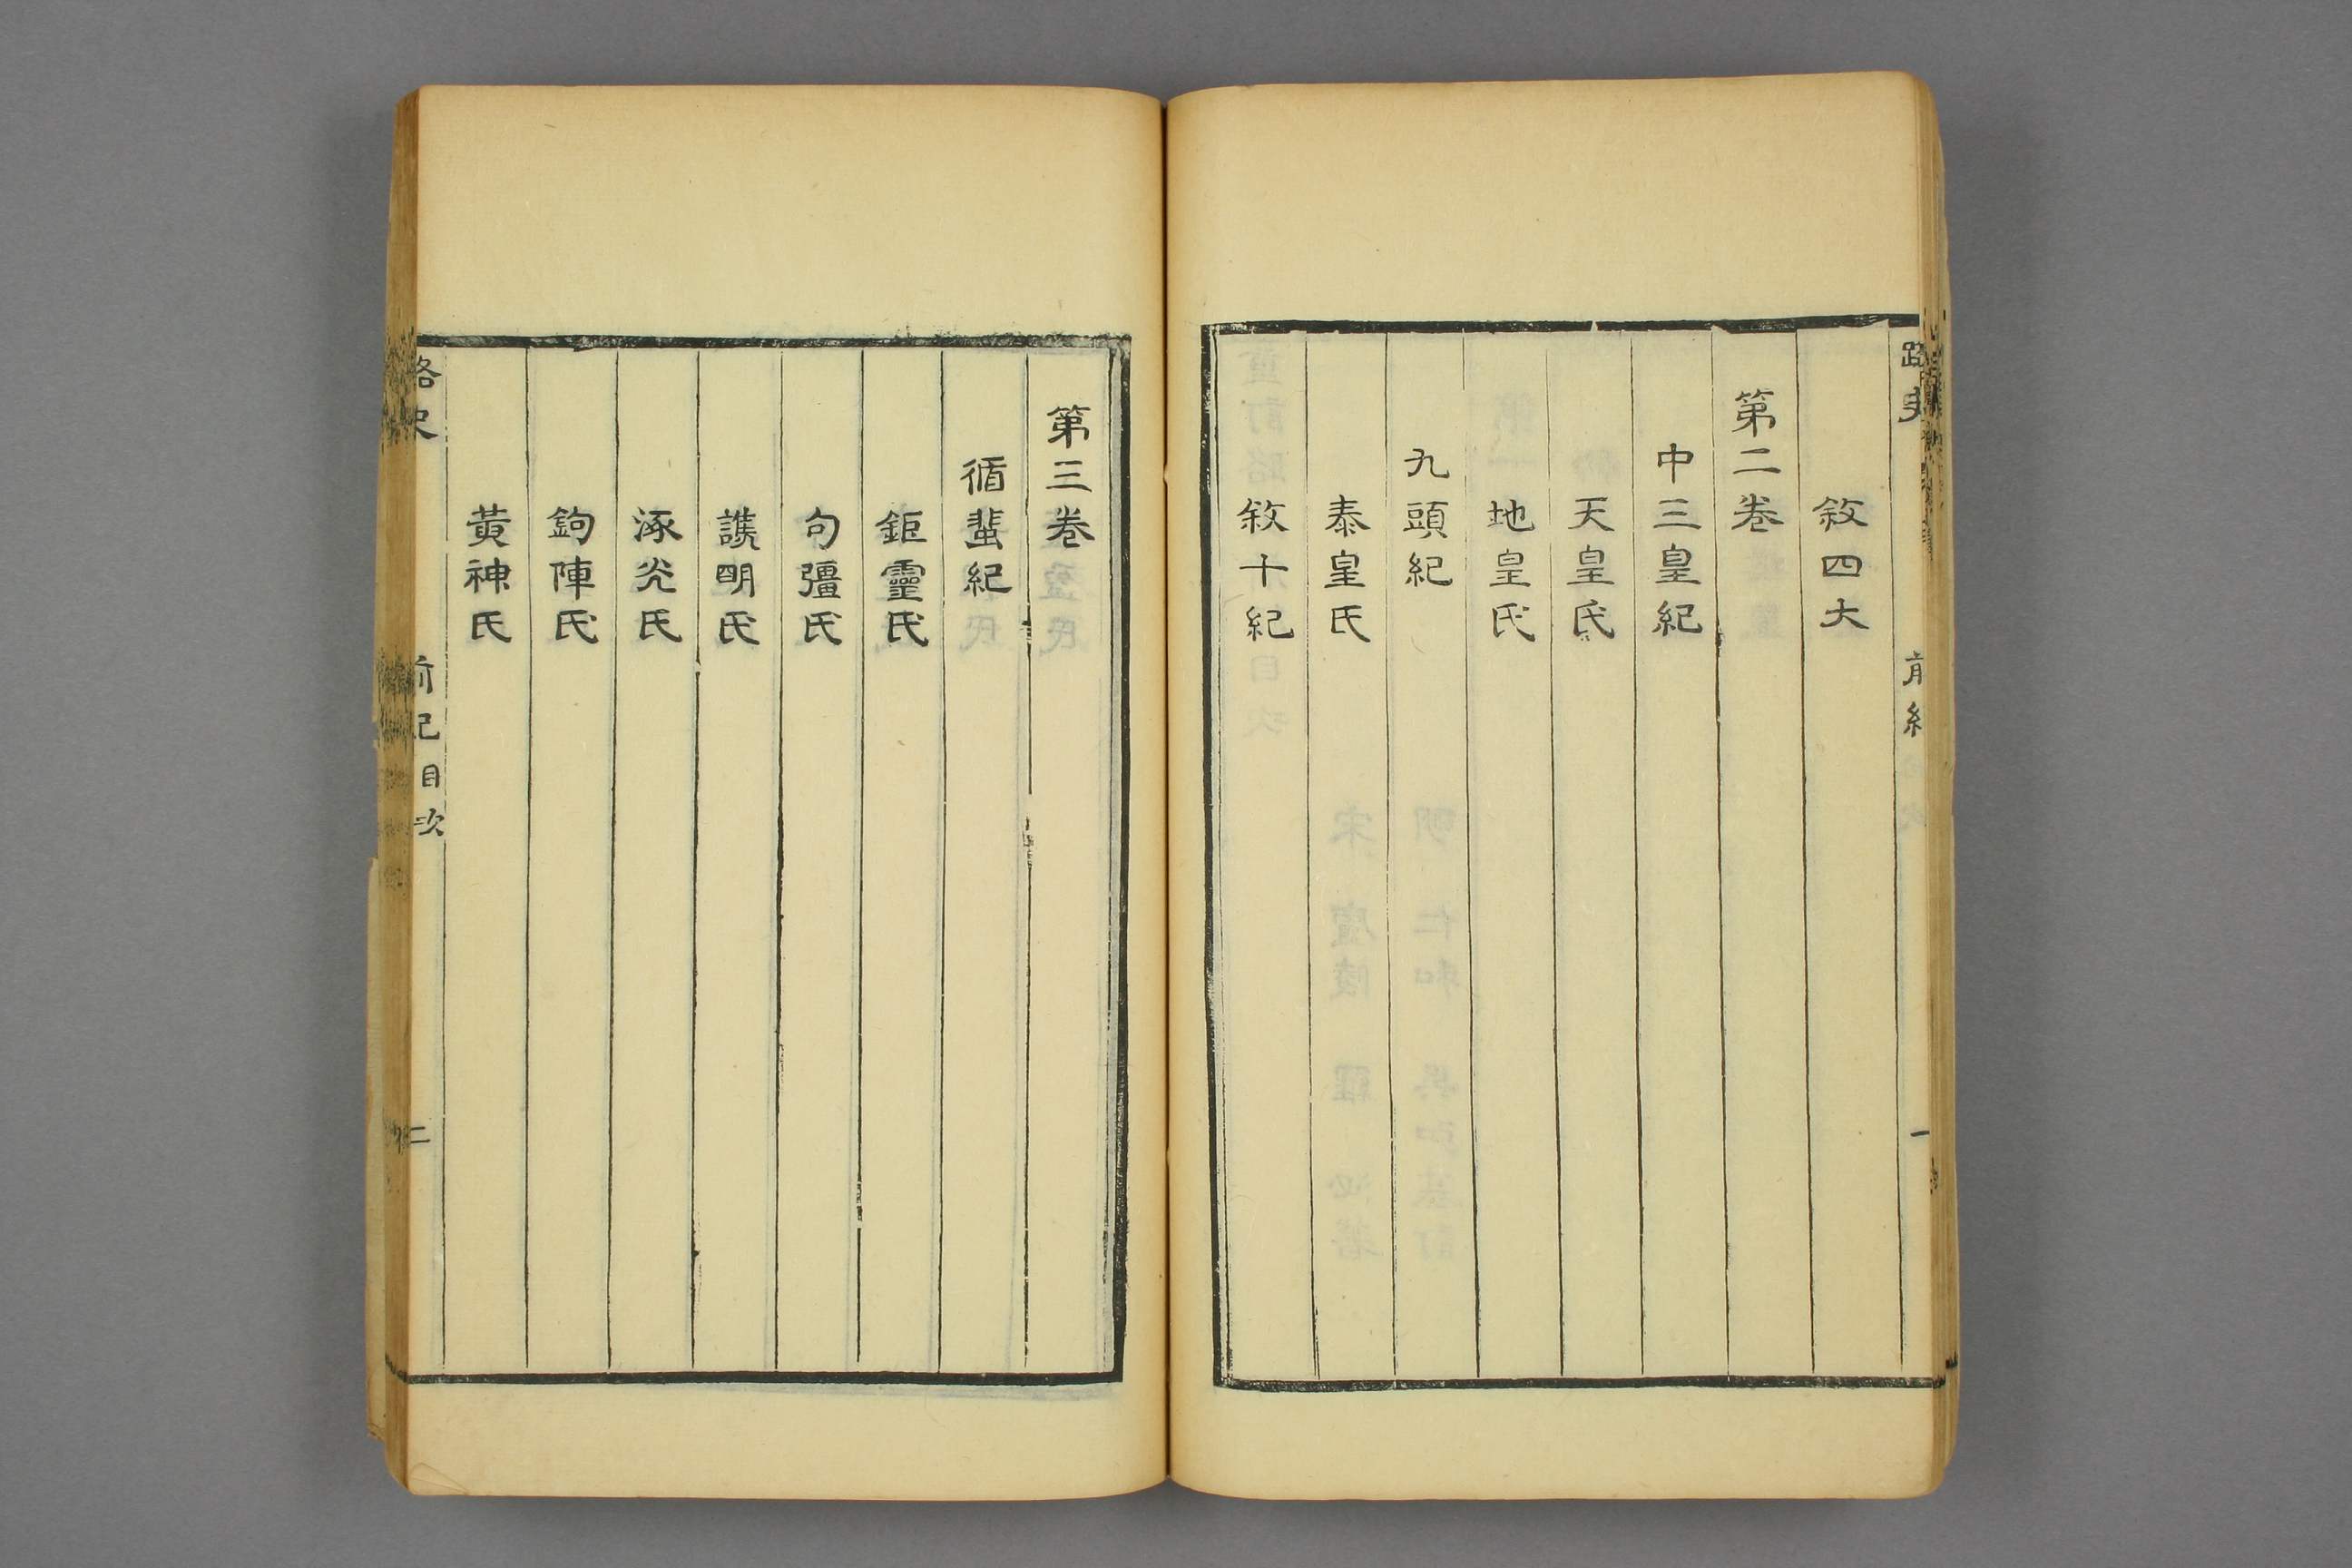 路史
前紀
一
敘四大
第二卷
中三皇紀
天皇氏
地皇氏
九頭紀
泰皇氏
敘十紀
第三卷
循蜚紀
鉅靈氏
句彊氏
譙明氏
涿光氏
鉤陣氏
黃神氏
路史
前紀目次
二